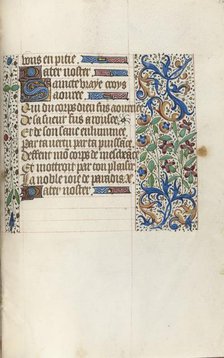 vous en pitie
Pater noster
Saincte vraye croys
aouree
Qui du corps dieu fus aournee
De sa sueur fus arousee
Et de son sanc enluminee
Par ta vertu par ta puissance
Deffent mon corps de mescheance
Et mottroit par ton plaisir
La noble ioie de paradis
Pater noster